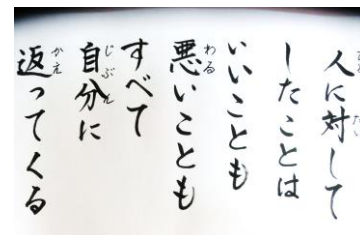 人に対して
したことは
いいことも
悪いことも
すべて
自分に
返ってくる